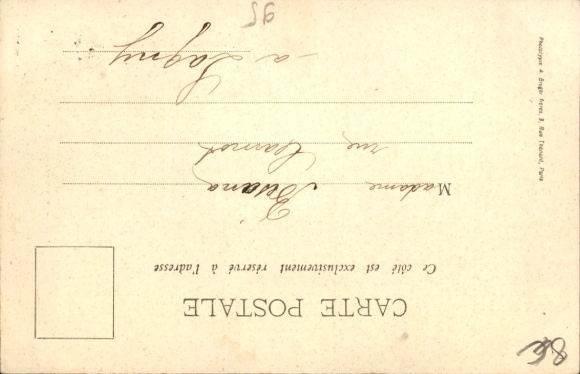 CARTE POSTALE
Ce côté est exclusivement réservé à l'adresse
Madame
rue Carnot
a Lagny
95
Phototypie A. Breger frères, 9, Rue Thénard, Paris